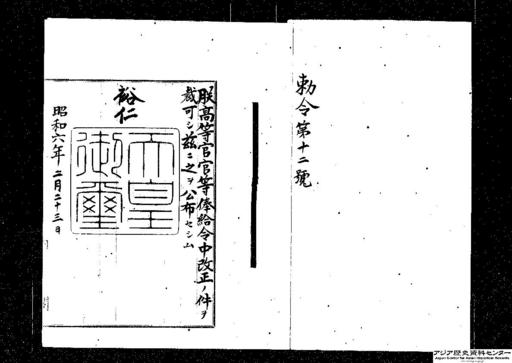 勅令第十二號
朕高等官官等俸給令中改正ノ件ヲ
裁可シ茲ニ之ヲ公布セシム
裕仁
天皇
御璽
昭和六年二月二十三日
アジア歴史資料センター
Japan Center for Asian Historical Records